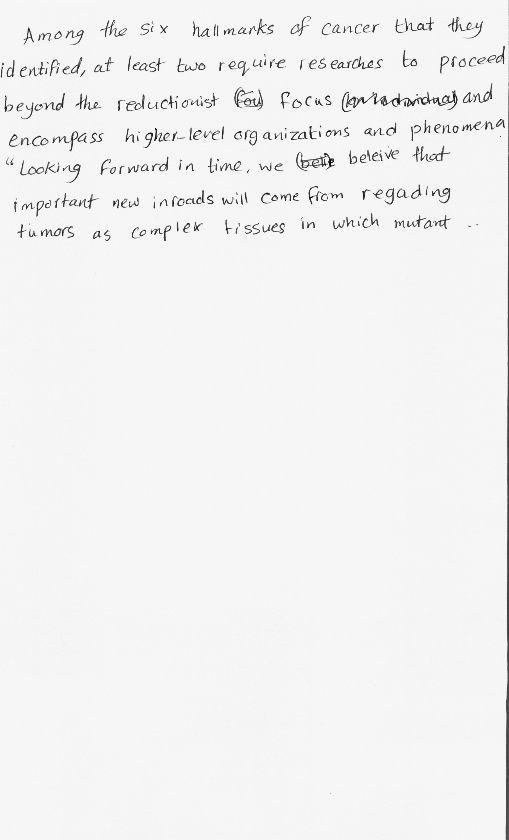 Among the six hallmarks of cancer that they
identified, at least two require researches to proceed
beyond the reductionist focus and
encompass higher-level organizations and phenomena.
"Looking forward in time, we beleive that
important new inroads will come from regading
tumors as complex tissues in which mutant ..